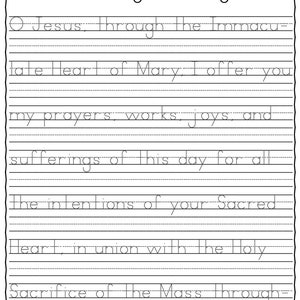 O Jesus, through the Immacu-
late Heart of Mary, I offer you
my prayers, works, joys, and
sufferings of this day for all
the intentions of your Sacred
Heart, in union with the Holy
Sacrifice of the Mass through-